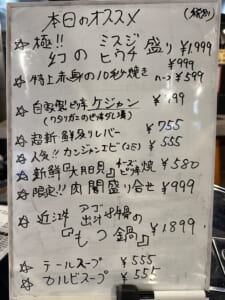 本日のオススメ (税別)
☆ 極!! 幻の ミスジ ヒウチ 盛り ¥1,999
☆ 特上赤身の10秒焼き 一コ ¥599
☆ 自家製ピリ辛ケジャン ¥799
(ワタリガニのピリ辛ダレ漬)
☆ 超新鮮炙りレバー ¥755
☆ 人気!! カンジャンエビ(2尾) ¥555
☆ 新鮮『大月貝』チーズピリ辛焼 ¥580
☆ 限定!! 肉聞盛り合せ ¥999
☆ 近江牛 アゴ出汁 の
『もつ鍋』 ¥1899
☆ テールスープ ¥555
☆ カルビスープ ¥555